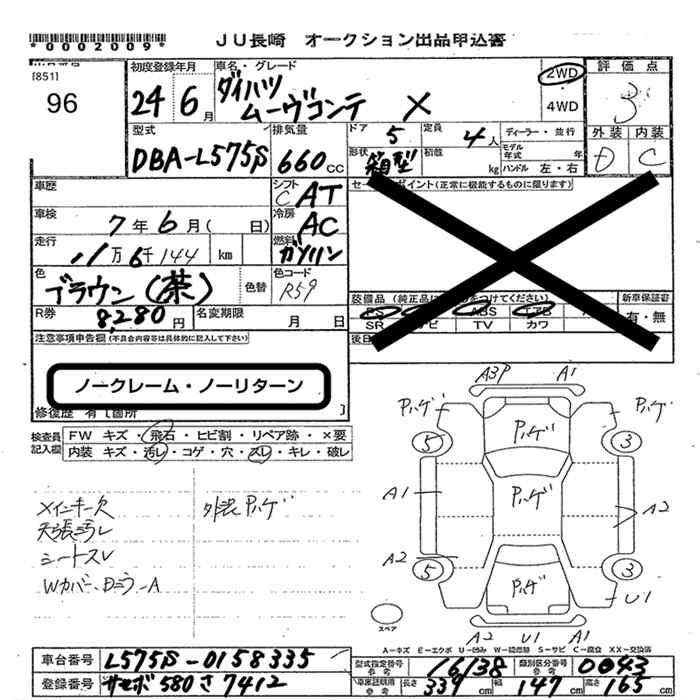 *0002009*
JU長崎 オークション出品申込書
[851]
96
初度登録年月
24年6月
車名・グレード
ダイハツ
ムーヴコンテ X
2WD
4WD
評価点
3
型式
DBA-L575S
排気量
660cc
ドア 5
定員 4人
形状 箱型
積数 kg
ディーラー・並行
モデル年式 年
ハンドル 左・右
外装 内装
D C
車歴
シフト
C AT
車検
7年6月( 日)
冷房
AC
走行
11万6千144 km
燃料
ガソリン
色
ブラウン(茶)
色替
色コード
R59
R券
8,280円
名変期限 月 日
セールスポイント(正常に機能するものに限ります)
装備品(純正品に をつけてください)
PS ABS エアB
SR ナビ TV カワ
新車保証書
有・無
後日
注意事項申告欄(不具合内容等は具体的に記入して下さい)
ノークレーム・ノーリターン
修復歴 有[箇所 ]
検査員記入欄
FW キズ・飛石・ヒビ割・リペア跡・×要
内装 キズ・汚レ・コゲ・穴・スレ・キレ・破レ
メインキー欠
天張汚レ
シートスレ
Wカバー、Dミラ-A
外装Pハゲ
A3P A1
Pハゲ Pハゲ Pハゲ
5 3
Pハゲ
A1 A2
A2
5 3
Pハゲ
U1
スペア
A2 U1 A1
A-キズ E-エクボ U-凹み W-補修跡 S-サビ C-腐食 XX-交換済
車台番号 L575S-0158335
登録番号 サセボ580さ7412
型式指定番号 参考 16138
類別区分番号 参考 0043
車庫証明用 参考 長さ 339cm 幅 147cm 高さ 165cm